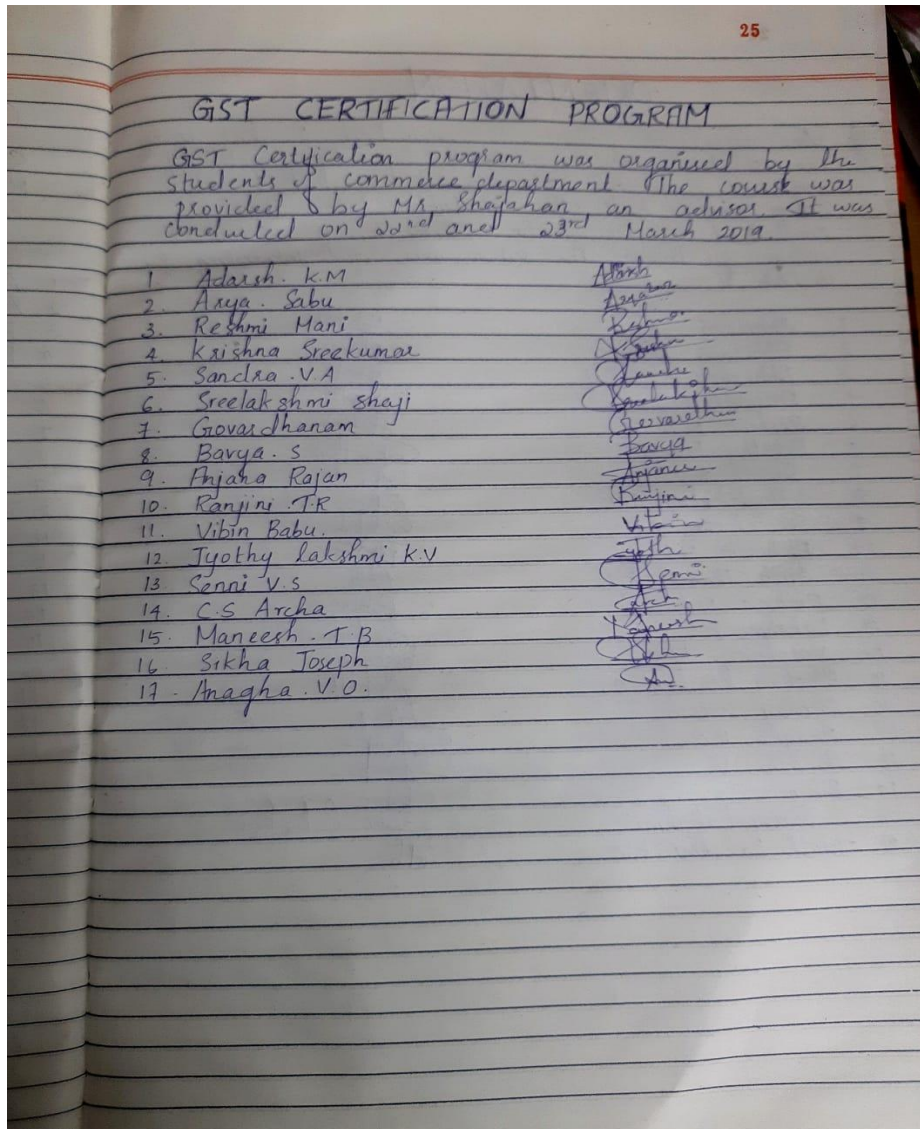 25
GST CERTIFICATION PROGRAM
GST Certification program was organised by the
students of commerce department. The course was
provided by Mr, Shajahan an advisor. It was
conducted on 22nd and 23rd March 2019.
1 Adarsh. K.M Adarsh
2. Arya. Sabu
3. Reshmi Mani
4. Krishna Sreekumar
5. Sandra .V.A
6. Sreelakshmi Shaji
7. Govardhanam
8. Bavya. S Bavya
9. Anjana Rajan Anjana
10. Ranjini .T.R Ranjini
11. Vibin Babu. Vibin
12. Jyothy lakshmi K.V
13 Senni V.S Senni
14. C.S Archa
15. Maneesh. T.B Maneesh
16 Sikha Joseph
17. Anagha. V.O.